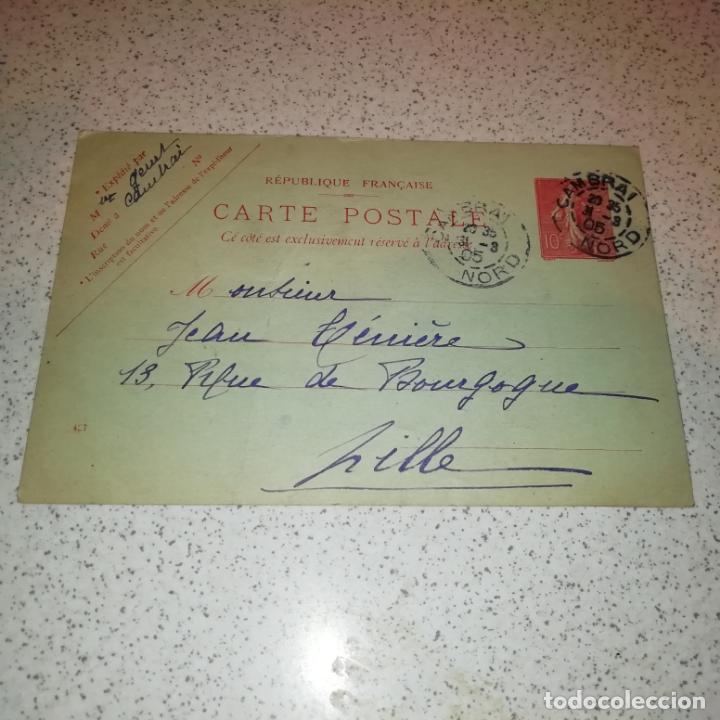 * Expédié par
M me Gernet
Demt à Cambrai
Rue Nº
* L'inscription du nom et de l'adresse de l'expéditeur
est facultative.
RÉPUBLIQUE FRANÇAISE
CARTE POSTALE
Ce côté est exclusivement réservé à l'adresse
CAMBRAI
20 35
31 -3
05
NORD
CAMBRAI
20 35
31 -3
05
NORD
10
Monsieur
Jean
13, Rue de Bourgogne
Lille
427
todocoleccion
todocoleccion.net